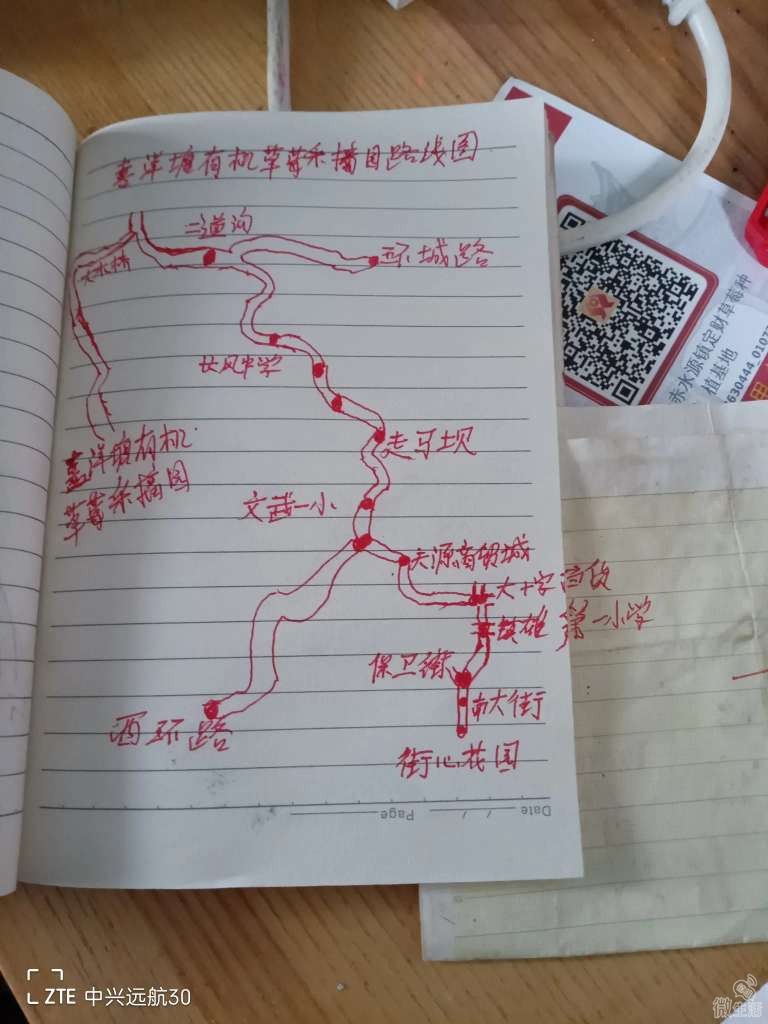 喜洋塘有机草莓采摘园路线图
二道沟
环城路
大水井
长风中学
喜洋塘有机
草莓采摘园
走马坝
文武一小
天源商贸城
大十字百货
镇雄第一小学
保卫街
南大街
西环路
街心花园
Date / /
Page
赤水源镇定财草莓种
植基地
ZTE 中兴远航30
微生活